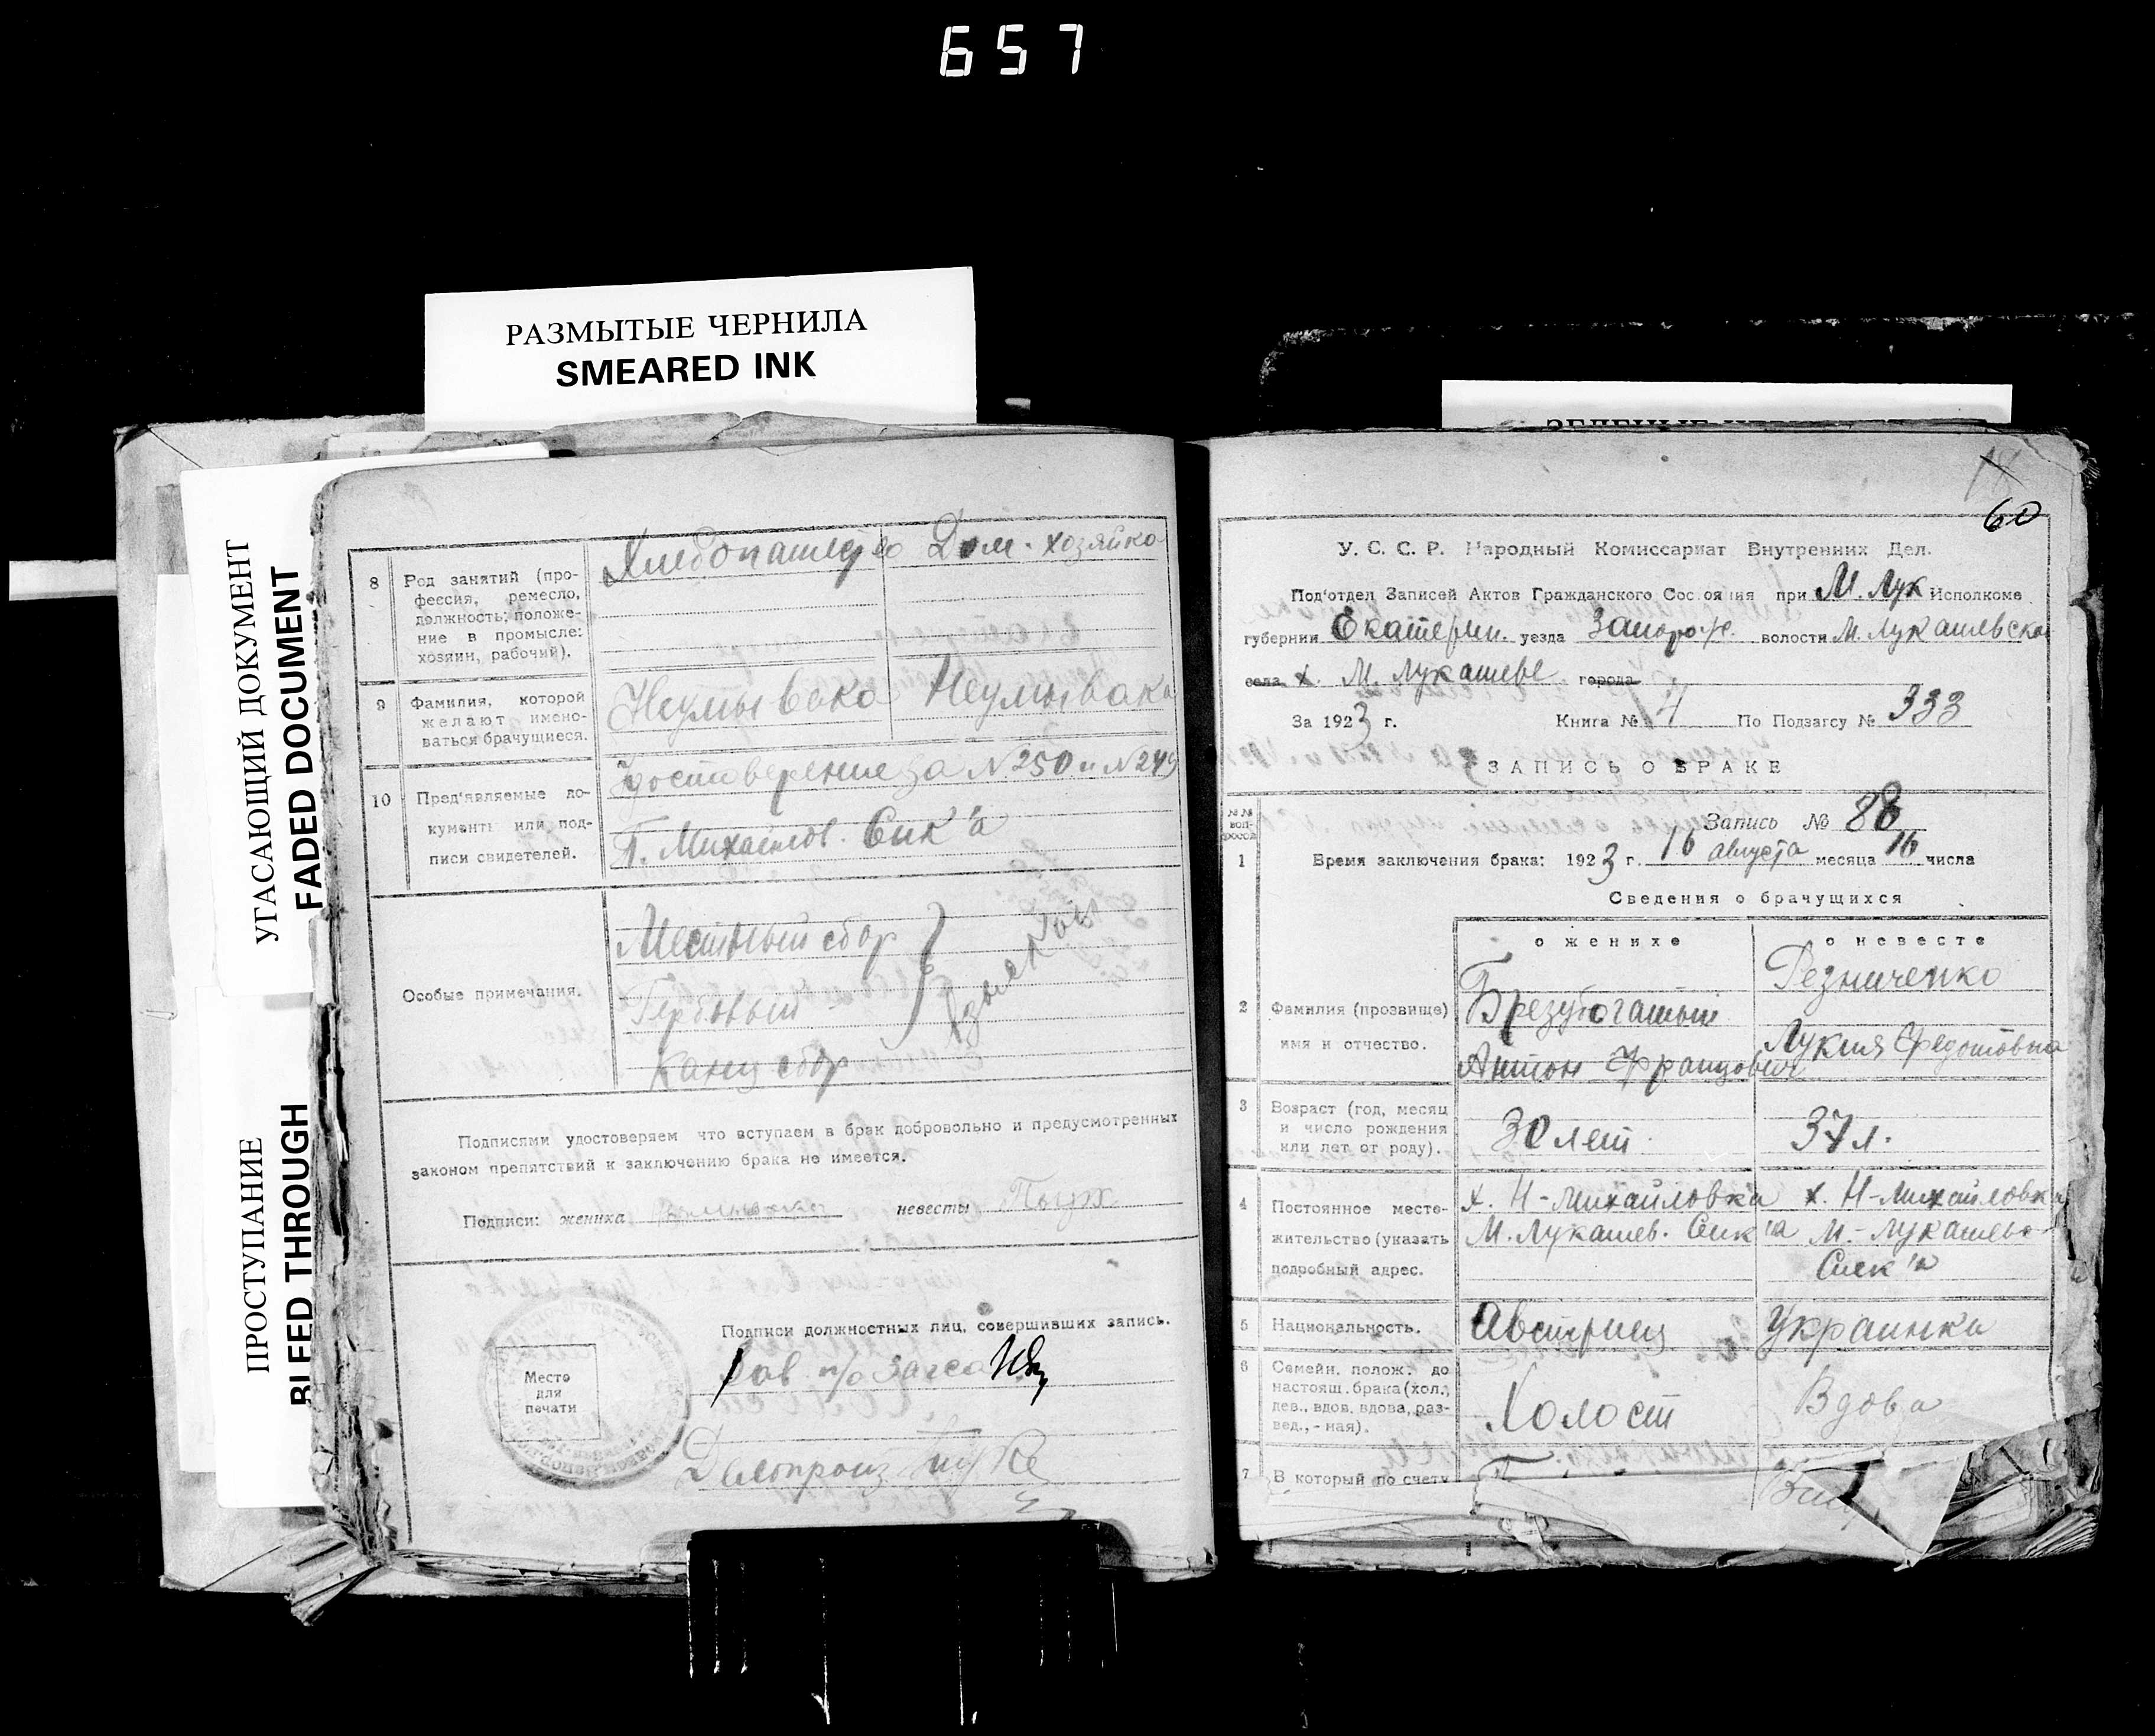 657
РАЗМЫТЫЕ ЧЕРНИЛА
SMEARED INK
УГАСАЮЩИЙ ДОКУМЕНТ
FADED DOCUMENT
ПРОСТУПАНИЕ
BLEED THROUGH
8 Род занятий (про-
фессия, ремесло,
должность; положе-
ние в промысле:
хозяин, рабочий).
Хлебопашество Дом. хозяйка
9 Фамилия, которой
желают имено-
ваться брачущиеся.
Неумывака Неумывака
10 Пред'являемые до-
кументы или под-
писи свидетелей.
Удостоверение за № 250 и № 249
П. Михайлов. Сик'а
Особые примечания.
Местный сбор
Гербовый
Канц сбор
Подписями удостоверяем что вступаем в брак добровольно и предусмотренных
законом препятствий к заключению брака не имеется.
Подписи: жениха невесты
Место
для
печати
Подписи должностных лиц, совершивших запись.
Зав. п/о Загса
Делопроиз
60
У. С. С. Р. Народный Комиссариат Внутренних Дел.
Под'отдел Записей Актов Гражданского Состояния при М. Лук Исполкоме
губернии Екатерин. уезда Запорож. волости М. Лукашевско
села х. М. Лукашеве города
За 1923 г. Книга № 4 По Подзагсу № 333
ЗАПИСЬ О БРАКЕ
№№
воп-
росов
Запись № 88
1 Время заключения брака: 1923 г. 16 августа месяца 16 числа
Сведения о брачущихся
о женихе о невесте
2 Фамилия (прозвище)
имя и отчество.
Брезубогатый
Антон Францович
Резниченко
Лукия Федотовна
3 Возраст (год, месяц
и число рождения
или лет от роду).
30 лет. 37 л.
4 Постоянное место-
жительство (указать
подробный адрес.
х. Н-Михайловка
М. Лукашев. Сик'а
х. Н-Михайловка
М.-Лукашев
Сик'а
5 Национальность.
Австриец Украинка
6 Семейн. полож. до
настоящ. брака (хол.,
дев., вдов, вдова, раз-
вед., - ная).
Холост Вдова
7 В который по счету